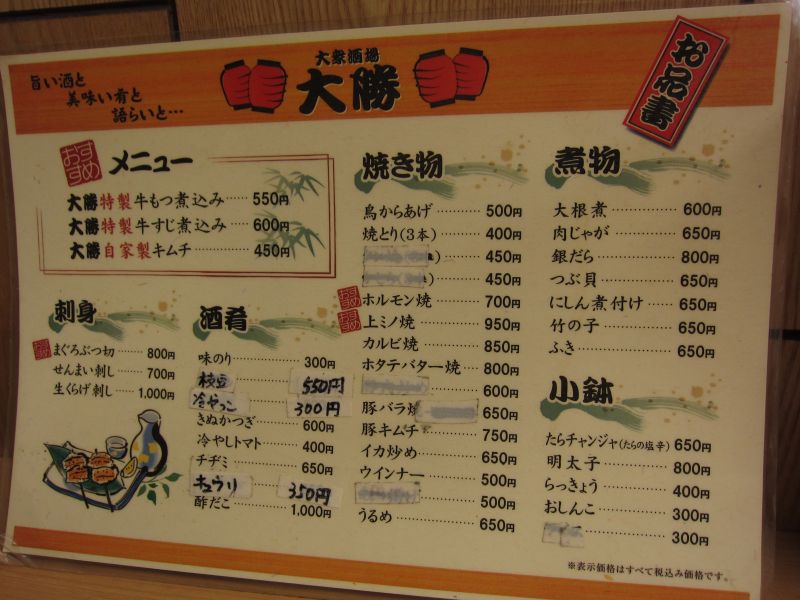 旨い酒と
美味い肴と
語らいと…
大衆酒場
大勝
お品書
おすすめ
メニュー
大勝特製牛もつ煮込み 550円
大勝特製牛すじ煮込み 600円
大勝自家製キムチ 450円
刺身
おすすめ
まぐろぶつ切 800円
せんまい刺し 700円
生くらげ刺し 1,000円
酒肴
味のり 300円
枝豆 550円
冷やっこ 300円
きぬかつぎ 600円
冷やしトマト 400円
チヂミ 650円
キュウリ 350円
酢だこ 1,000円
焼き物
鳥からあげ 500円
焼とり(3本) 400円
450円
450円
おすすめ
ホルモン焼 700円
おすすめ
上ミノ焼 950円
カルビ焼 850円
ホタテバター焼 800円
600円
豚バラ焼 650円
豚キムチ 750円
イカ炒め 650円
ウインナー 500円
500円
うるめ 650円
煮物
大根煮 600円
肉じゃが 650円
銀だら 800円
つぶ貝 650円
にしん煮付け 650円
竹の子 650円
ふき 650円
小鉢
たらチャンジャ(たらの塩辛) 650円
明太子 800円
らっきょう 400円
おしんこ 300円
300円
※表示価格はすべて税込み価格です。